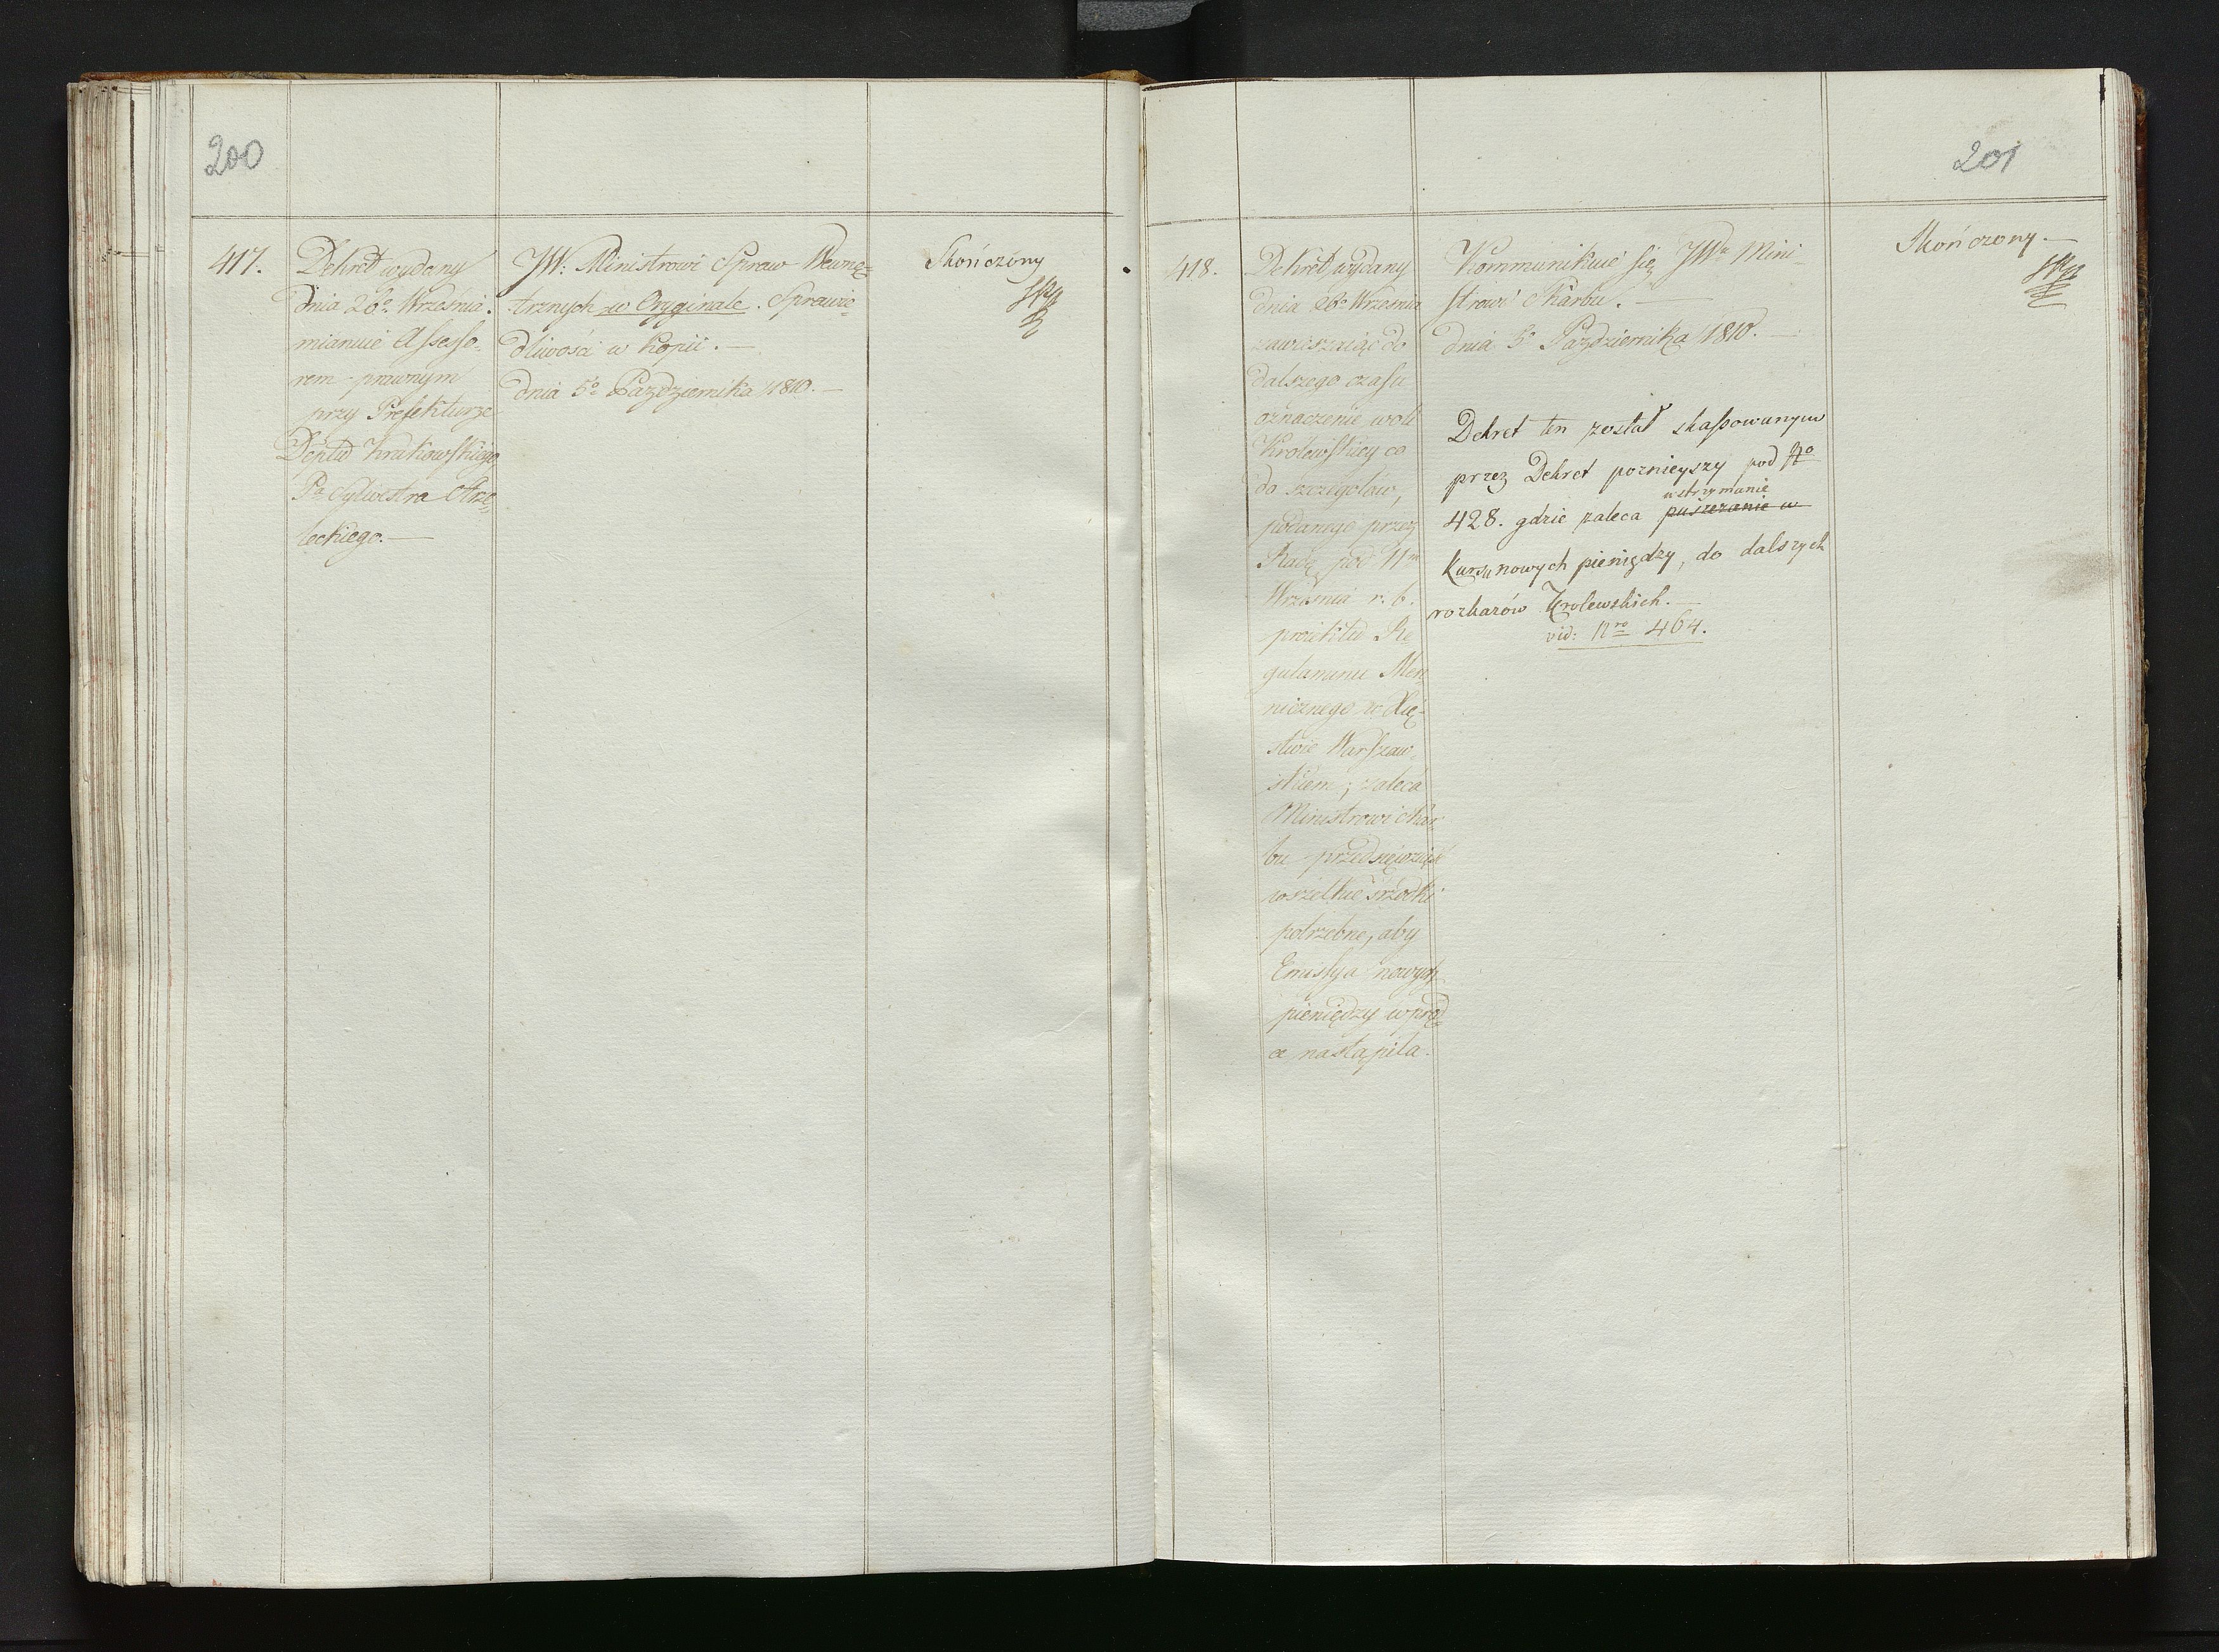 200
417.
Dekret wydany
dnia 26o Września
mianuie Assesso-
rem prawnym
przy Prefekturze
Deptu Krakowskiego
Pa Sylwestra Strze-
leckiego.—
JW: Ministrowi Spraw Wewnę-
trznych w Oryginale. Sprawie-
dliwości w Kopii.—
dnia 5o Października 1810.—
Skończony
201
418.
Dekret wydany
dnia 26o Września
zawieszaiąc do
dalszego czasu
oznaczenie woli
Krolewskiey co
do szczegołów,
podanego przez
Radę pod 11m
Września r. b.
proiektu Re
gulaminu Men
nicznego w Xię-
stwie Warszaw
skiem; zaleca
Ministrowi Skar
bu przedsięwziąść
wszelkie srzodki
potrzebne, aby
Emissya nowych
pieniędzy wpręd
ce nastąpiła.
Kommunikuie się JWu Mini-
strowi Skarbu.—
dnia 5o Października 1810.—
Dekret ten został skassowanym
przez Dekret poznieyszy pod No
428. gdzie zaleca puszczanie w wstrzymanie
kursu nowych pieniędzy, do dalszych
rozkazów Krolewskich.—
vid: Nro 464.
Skończony.—